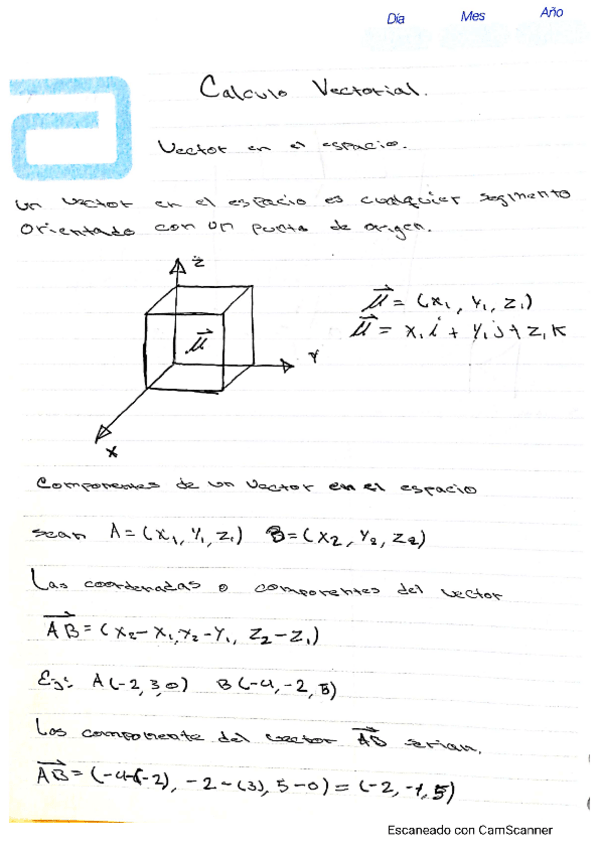 Día Mes Año
Calculo Vectorial.
Vector en el espacio.
un vector en el espacio es cualquier segmento
orientado con un punto de origen.
z
μ⃗ = (x₁, y₁, z₁)
μ⃗ = x₁i + y₁j + z₁k
μ⃗
y
x
Componentes de un vector en el espacio
sean A = (x₁, y₁, z₁) B = (x₂, y₂, z₂)
Las coordenadas o componentes del vector
AB⃗ = (x₂ - x₁, y₂ - y₁, z₂ - z₁)
Ej: A(-2, 3, 0) B(-4, -2, 5)
Las componente del vector AB⃗ serian.
AB⃗ = (-4-(-2), -2-(3), 5-0) = (-2, -1, 5)
Escaneado con CamScanner